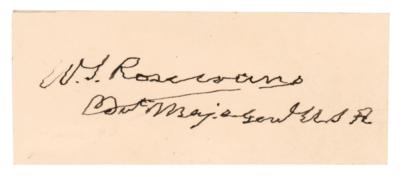 W. S. Rosecrans
Bvt Maj. Genl U.S.A.